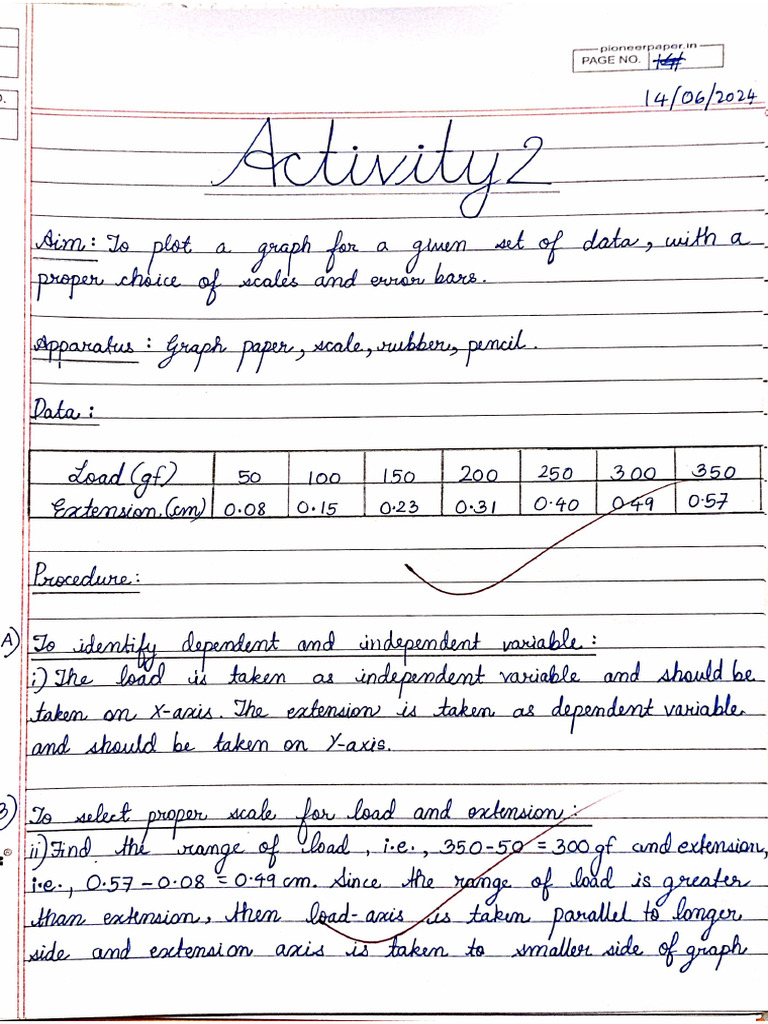 pioneerpaper.in
PAGE NO.
14/06/2024
Activity 2
Aim: To plot a graph for a given set of data, with a
proper choice of scales and error bars.
Apparatus: Graph paper, scale, rubber, pencil.
Data:
Load (gf) 50 100 150 200 250 300 350
Extension.(cm) 0.08 0.15 0.23 0.31 0.40 0.49 0.57
Procedure:
A) To identify dependent and independent variable:
i) The load is taken as independent variable and should be
taken on X-axis. The extension is taken as dependent variable
and should be taken on Y-axis.
B) To select proper scale for load and extension:
ii) Find the range of load, i.e., 350-50 = 300 gf and extension,
i.e., 0.57-0.08 = 0.49 cm. Since the range of load is greater
than extension, then load-axis is taken parallel to longer
side and extension axis is taken to smaller side of graph